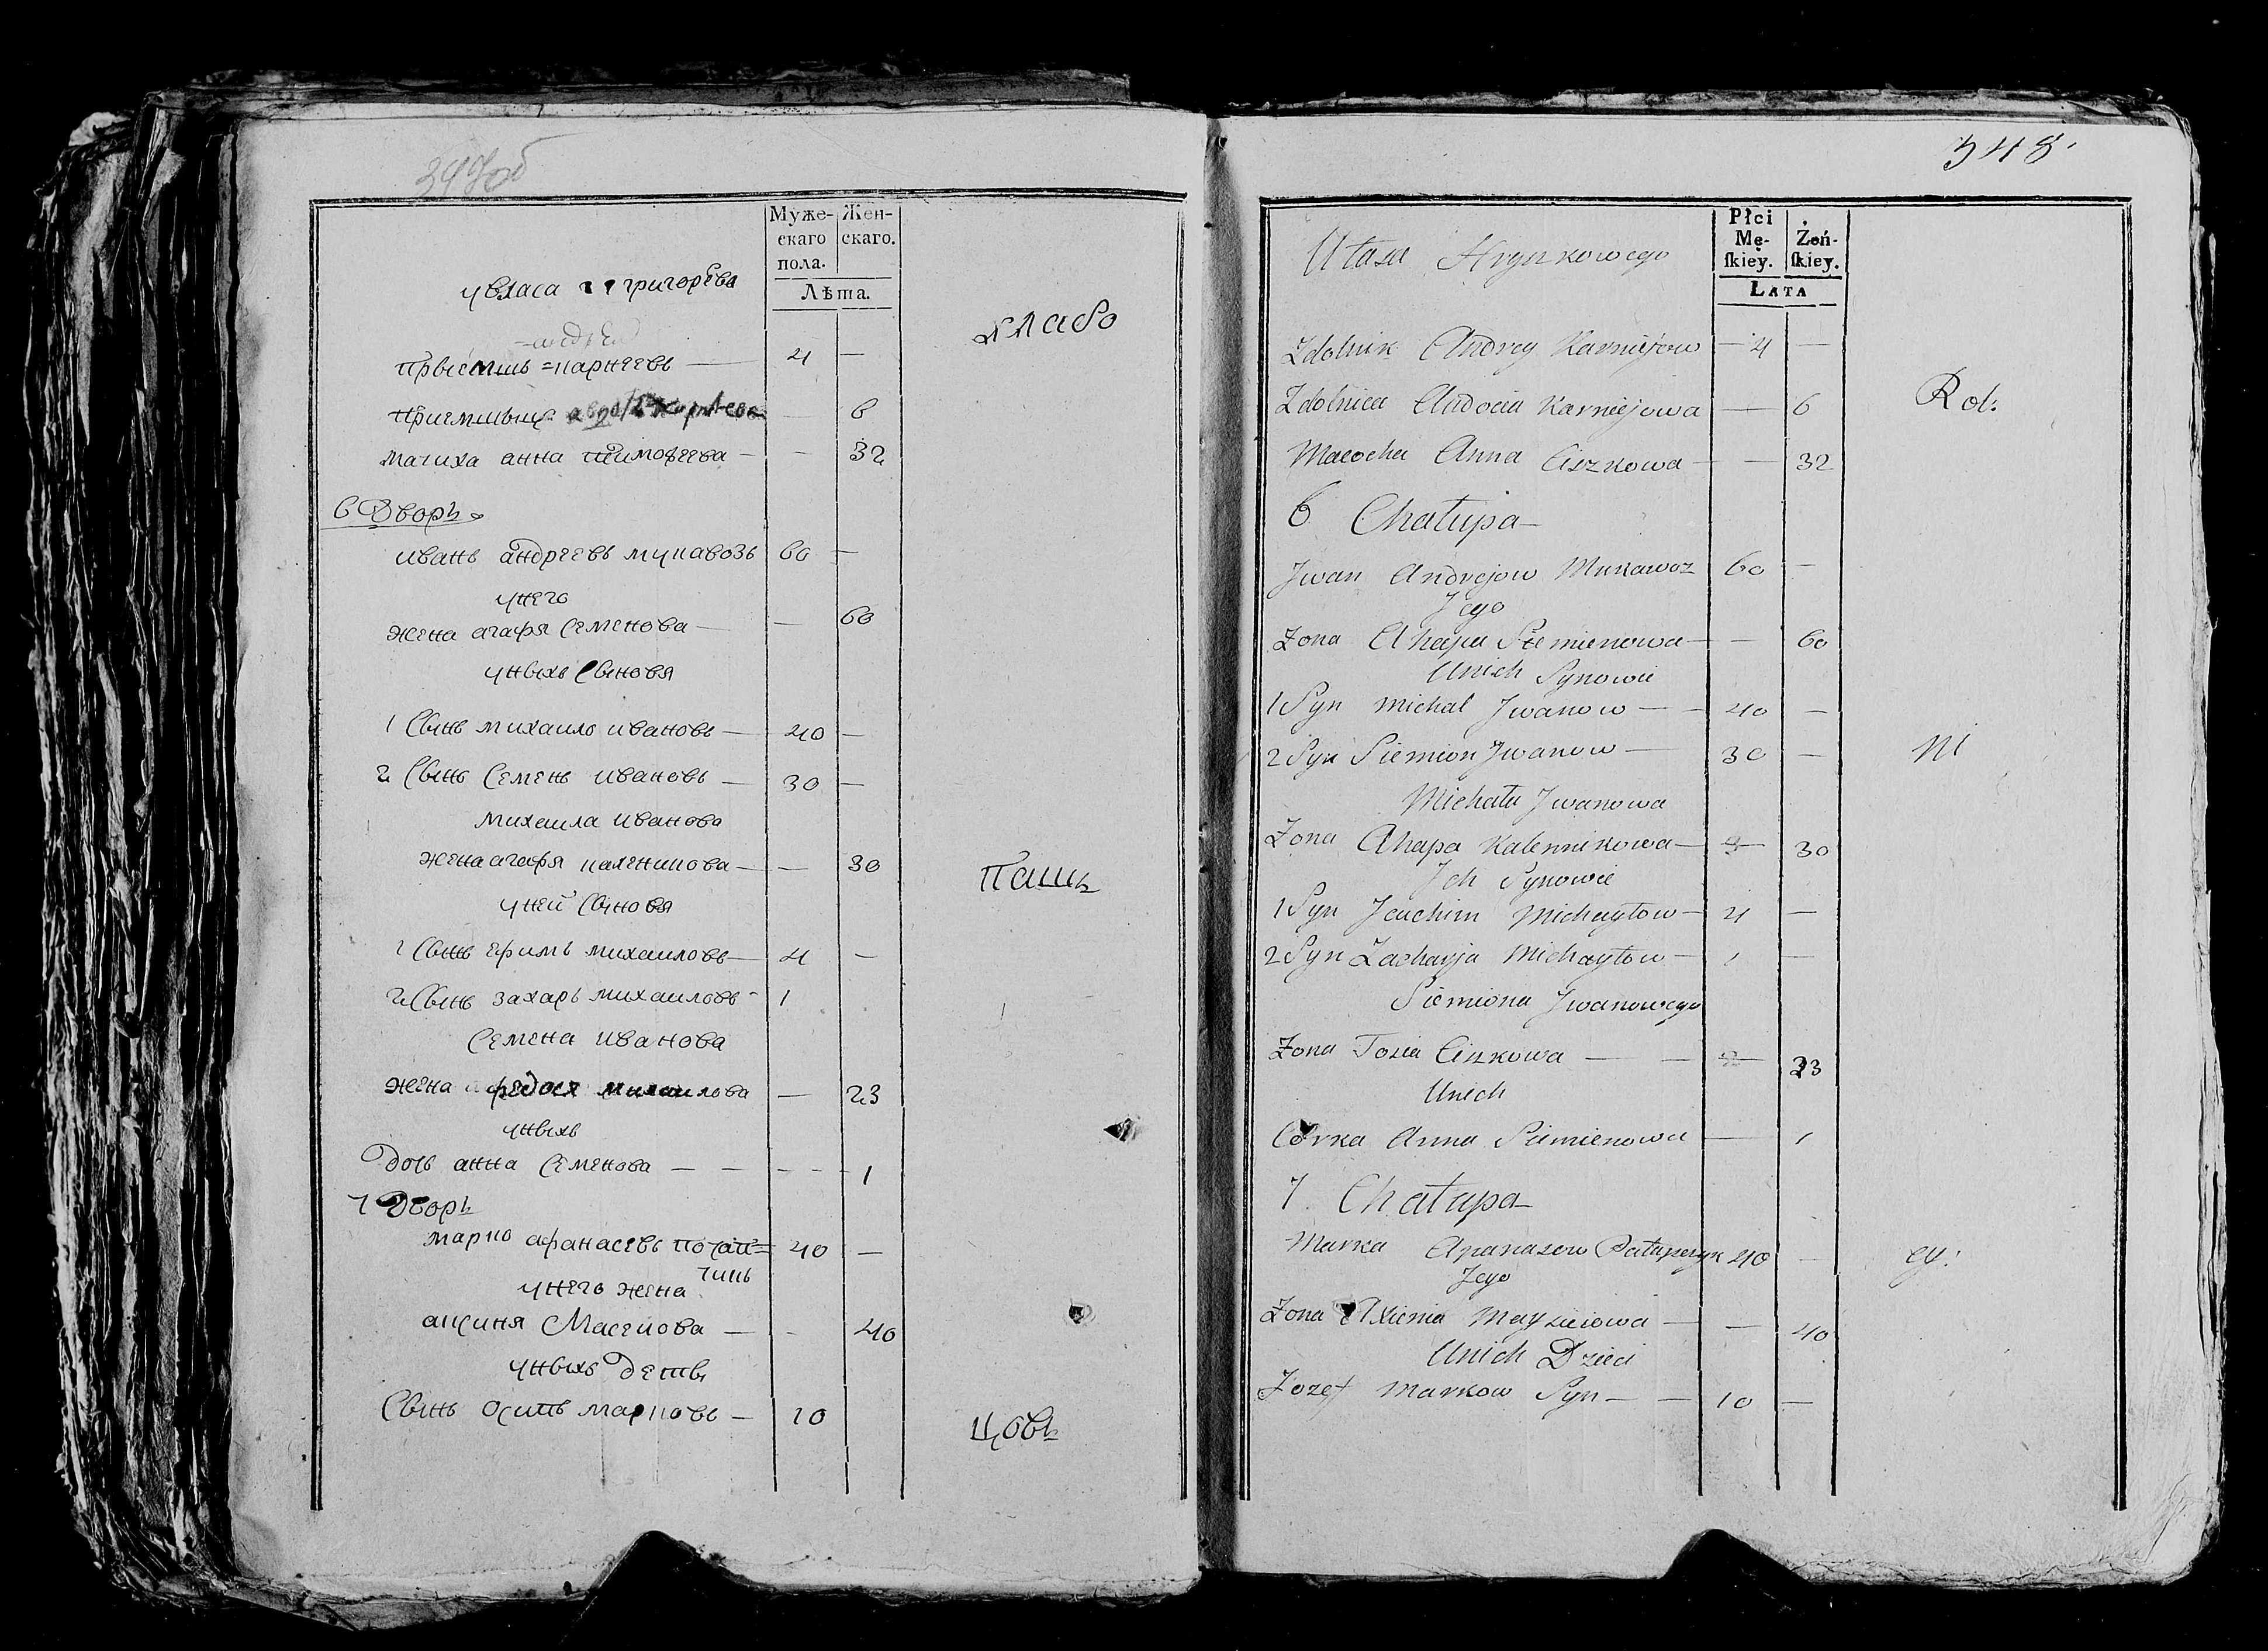 347об
Муже-
скаго
пола.
Жен-
скаго.
Лѣта.
у власа григорева
андрей
прыемшъ карнеевъ — 4 —
приемшыца — 6
мачиха анна тимофеева — — 32
хлабо
6 Дворъ
иванъ андреевъ мукавозъ 60 —
у него
жена агафя Семенова — — 60
у ныхъ Сыновя
1 Сынъ михаило ивановъ — 40 —
2 Сынъ Семенъ ивановъ — 30 —
михаила иванова
жена агафя каленикова — — 30
пашъ
у ней Сыновя
1 Сынъ ефимъ михаиловъ — 4 —
2 Сынъ захаръ михаиловъ - 1
Семена иванова
жена федося — 23
у ныхъ
дочъ анна Семенова — — - - - 1
7 Дворъ
марко афанасевъ потап= 40 —
чикъ
у него жена
аксиня Масеиова — - 40
у ныхъ деты
Сынъ осипъ марковъ — 10
цовъ
348
Płci
Mę-
ſkiey.
Żeń-
ſkiey.
LATA
Ułasa Hrynkowego
Zdolnik Andrey Karniejow — 4 —
Zdolnica Audocia Karniejowa — 6
Rol:
Macocha Anna Ciszkowa — — 32
6 Chałupa
Jwan Andrejow Mukawoz 60 —
Jego
Zona Ahapa Siemienowa — — 60
Unich Synowie
1 Syn Michał Jwanow — — 40 —
2 Syn Siemion Jwanow — 30 —
ni
Michała Jwanowa
Zona Ahapa Kalennikowa — 30
Jch Synowie
1 Syn Joachim Michayłow — 4 —
2 Syn Zacharja Michayłow — 1 —
Siemiona Jwanowego
Zona Tosia Ciszkowa — — 23
Unich
Córka Anna Siemienowa — 1
7. Chałupa
Marka Apanasow Patapczyk 40 —
ey:
Jego
Zona Axienia Maysieiowa — — 40
Unich Dzieci
Jozef Markow Syn — — 10 —